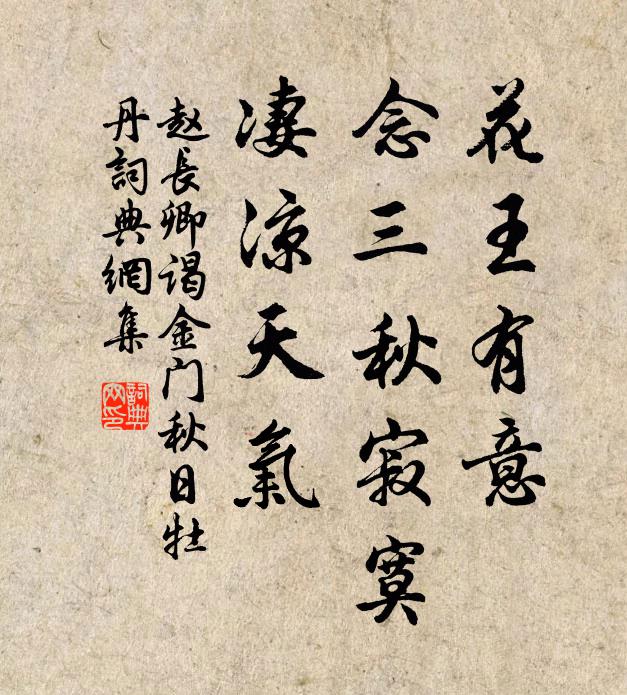 花王有意
念三秋寂寞
凄涼天氣
赵長卿谒金门秋日牡
丹詞典網集
詞典
网印